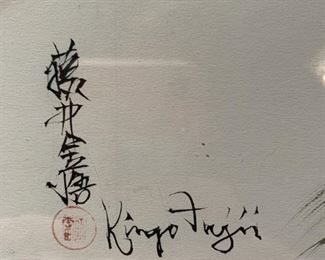 藤井金悟
Kingo Fujii